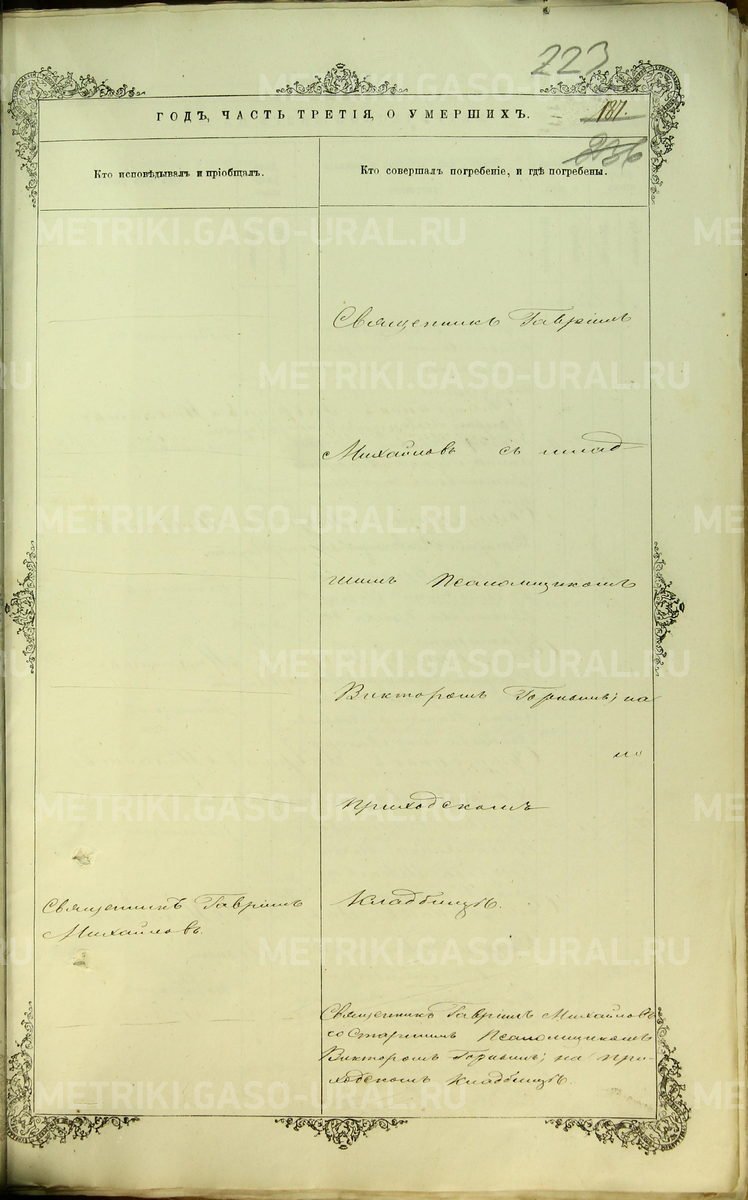 223
ГОДЪ, ЧАСТЬ ТРЕТІЯ, О УМЕРШИХЪ.
187.
236
Кто исповѣдывалъ и пріобщалъ.
Кто совершалъ погребеніе, и гдѣ погребены.
Священникъ Гавріилъ
Михайловъ съ млад
шимъ Псаломщикомъ
Викторомъ; на
Приходскомъ
Кладбищѣ.
Священникъ Гавріилъ
Михайловъ.
Священникъ Гавріилъ Михайловъ
со Старшимъ Псаломщикомъ
Викторомъ; на при-
ходскомъ кладбищѣ.
METRIKI.GASO-URAL.RU